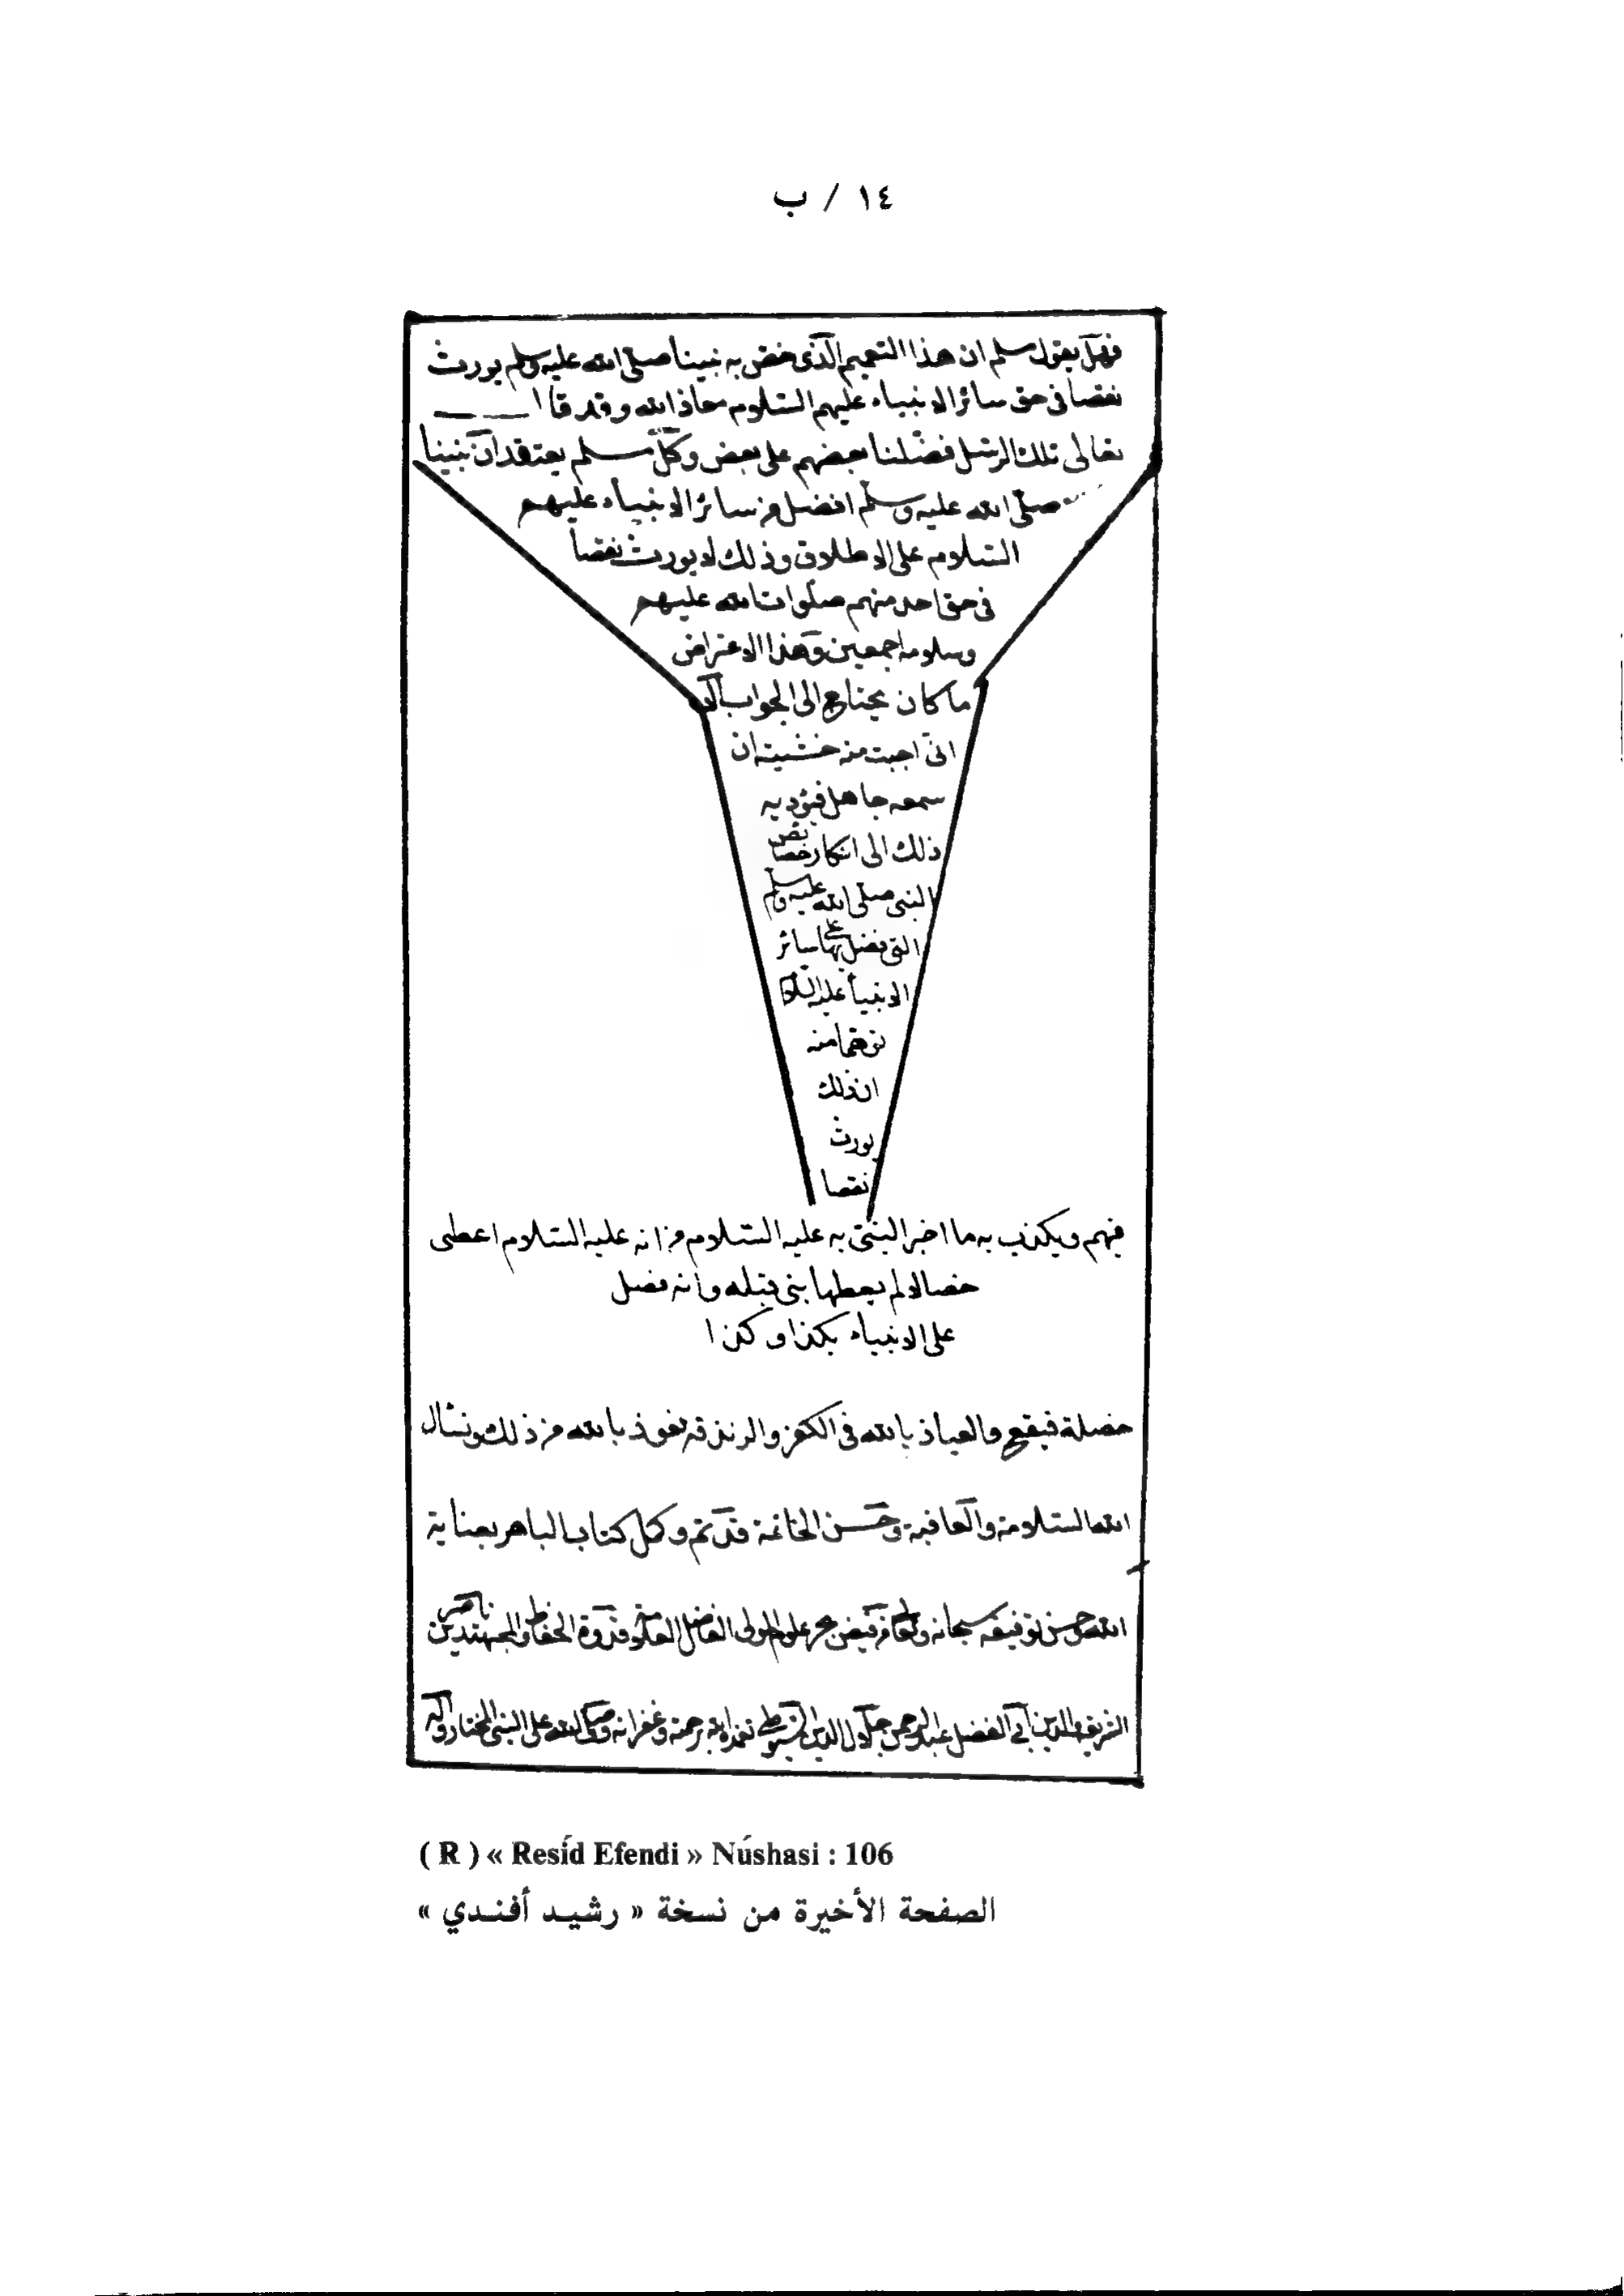 ١٤ / ب
فهل يقول مسلم ان هذا التعميم الذى خص به نبينا صلى الله عليه وسلم يورث
نقصا فى حق سائر الانبياء عليهم السلام معاذ الله وقد قال
تعالى تلك الرسل فضلنا بعضهم على بعض وكل مسلم يعتقد ان نبينا
صلى الله عليه وسلم افضل من سائر الانبياء عليهم
السلام على الاطلاق وذلك لا يورث نقصا
فى حق احد منهم صلوات الله عليهم
وسلامه اجمعين وهذا الاعتراض
ما كان يحتاج الى الجواب
انى اجبت منه خشية ان
سمعه جاهل فيؤديه
ذلك الى انكار خصائص
النبى صلى الله عليه وسلم
التى فضل بها على سائر
الانبيا عليه
توهما منه
ان ذلك
يورث
نقصا
فيهم ويكذب به ما اخبر النبى به عليه السلام من انه عليه السلام اعطى
خصالا لم يعطها نبى قبله وانه فضل
على الانبياء بكذا وكذا
خصلة فيقع والعياذ بالله فى الكفر والزندقة نعوذ بالله من ذلك ونسأل
الله السلامة والعافية وحسن الخاتمة قد تم وكمل كتاب الباهر بعناية
الله وحسن توفيقه سبحانه وتعالى من فيض بحر علوم المولى الفاضل العلامة قدوة الحفاظ والمجتهدين ناصر
الدين أبى الفضل عبد الرحمن جلال الدين السيوطى تغمده الله برحمته وغفرانه وصلى الله على النبى المختار وآله
( R ) « Resíd Efendi » Núshasi : 106
الصفحة الأخيرة من نسخة « رشيد أفندي »